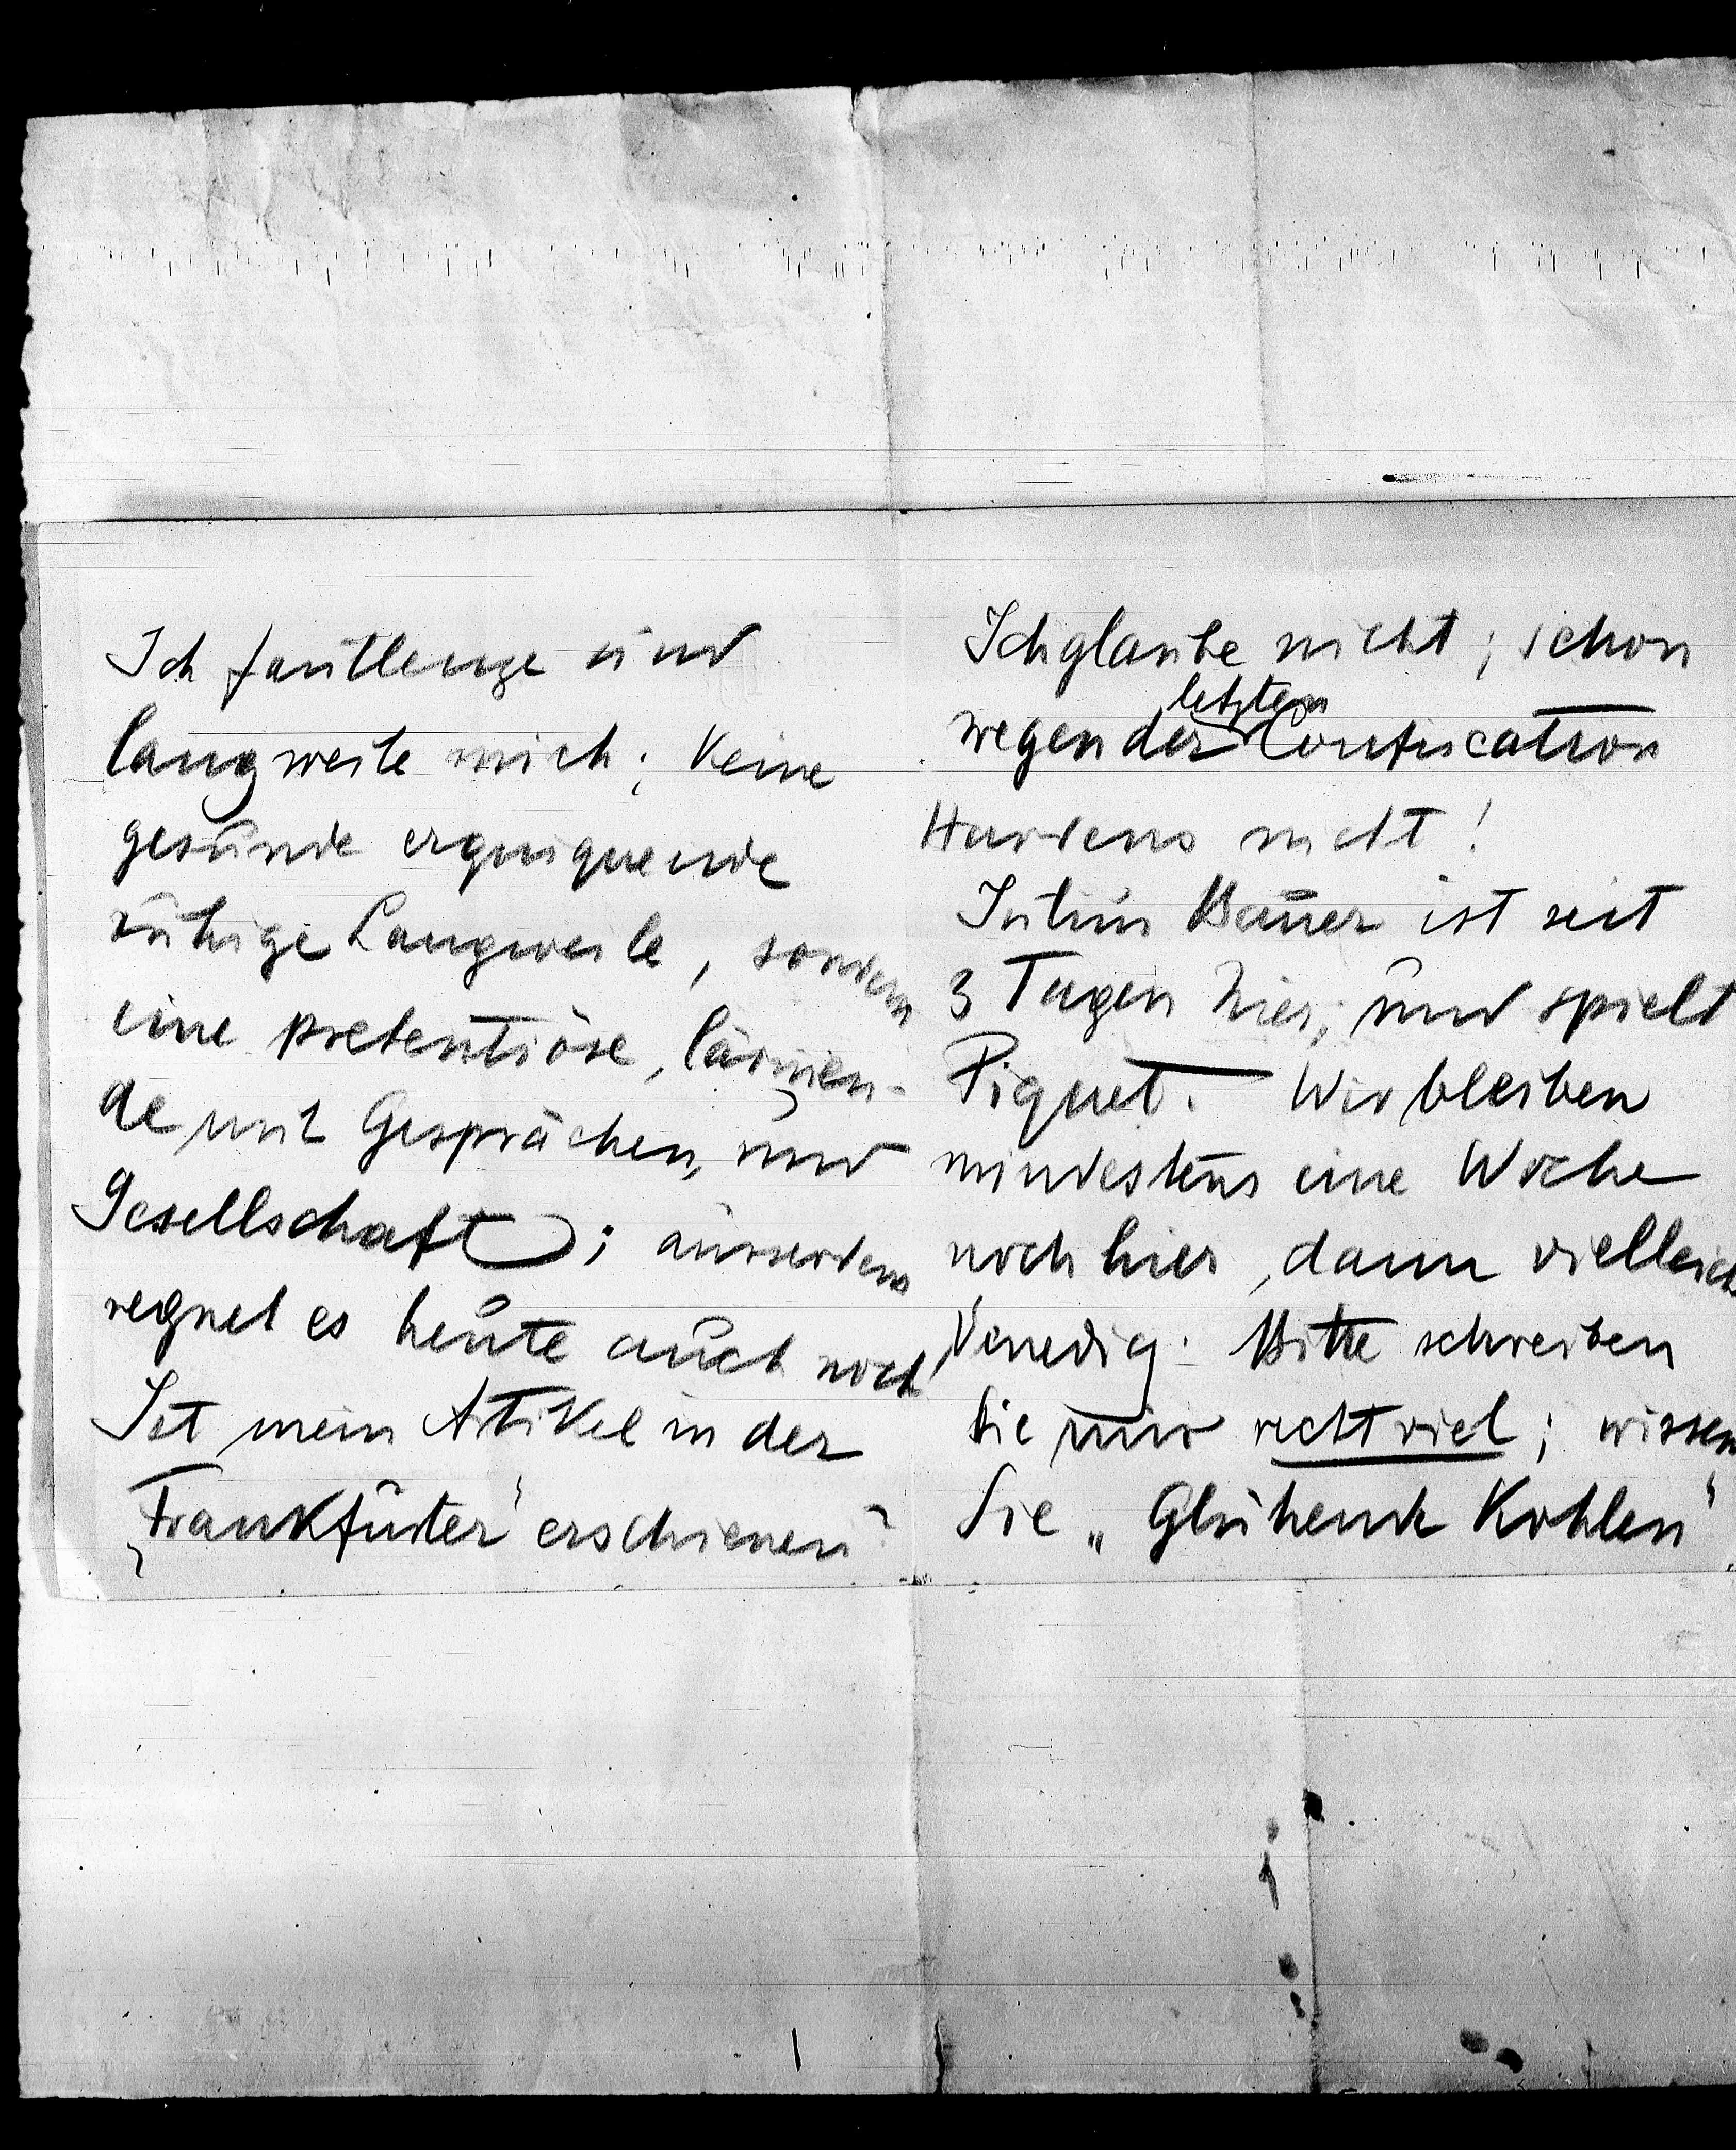 Ich faullenze und
langweile mich; keine
gesunde erquiquende
ruhige Langweile, sondern
eine pretentiöse, lärmen-
de mit Gesprächen, und
Gesellschaft; ausserdem
regnet es heute auch noch
Ist mein Artikel in der
„Frankfurter“ erschienen?
Ich glaube nicht; schon
letzten
wegen der Confiscation
Hardens nicht!
Julius Bauer ist seit
3 Tagen hier, und spielt
Piquet. Wir bleiben
mindestens eine Woche
noch hier, dann vielleich
Venedig. Bitte schreiben
Sie mir recht viel; wissen
Sie „Glühende Kohlen“